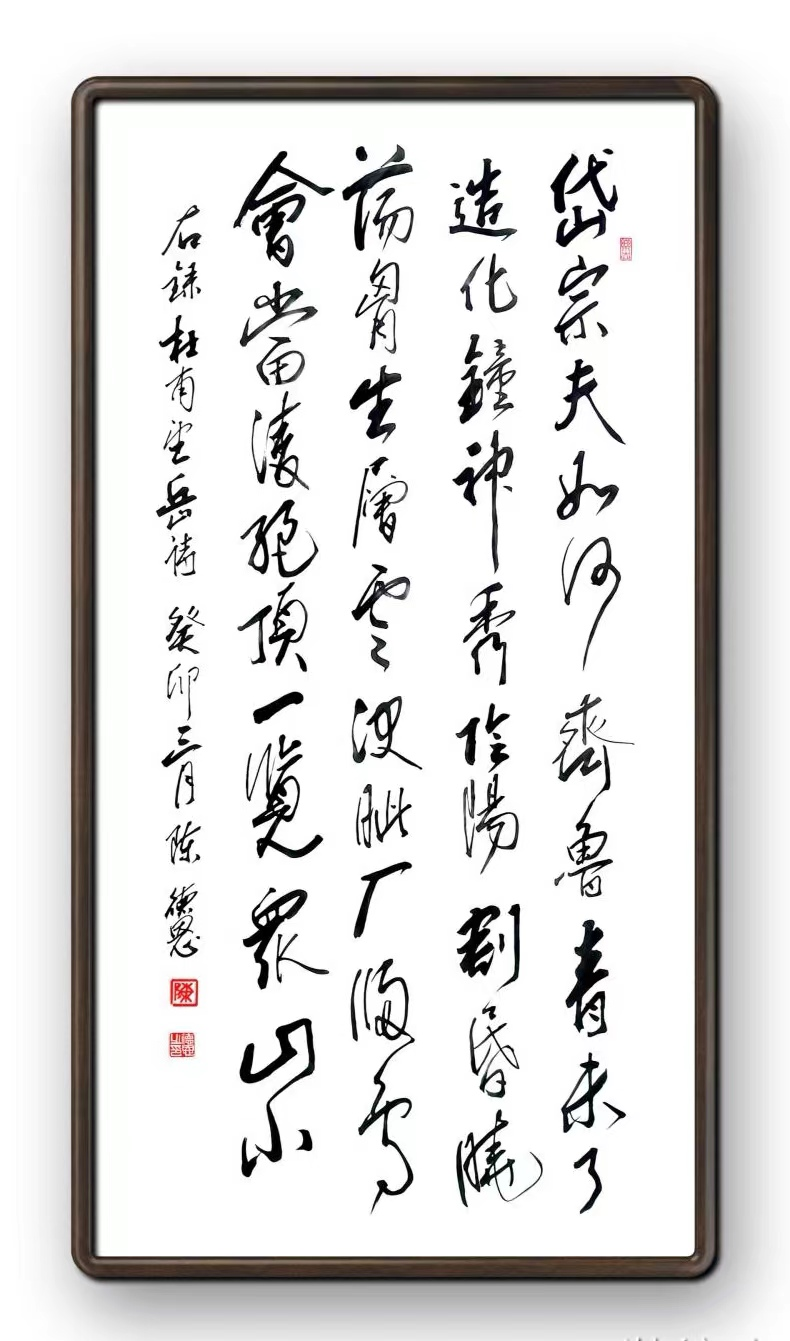 岱宗夫如何齊魯青未了
造化鐘神秀陰陽割昏曉
蕩胷生層雲決眦入歸鳥
會當淩絕頂一覽眾山小
右錄杜甫望岳詩 癸卯三月陳德恩
陳